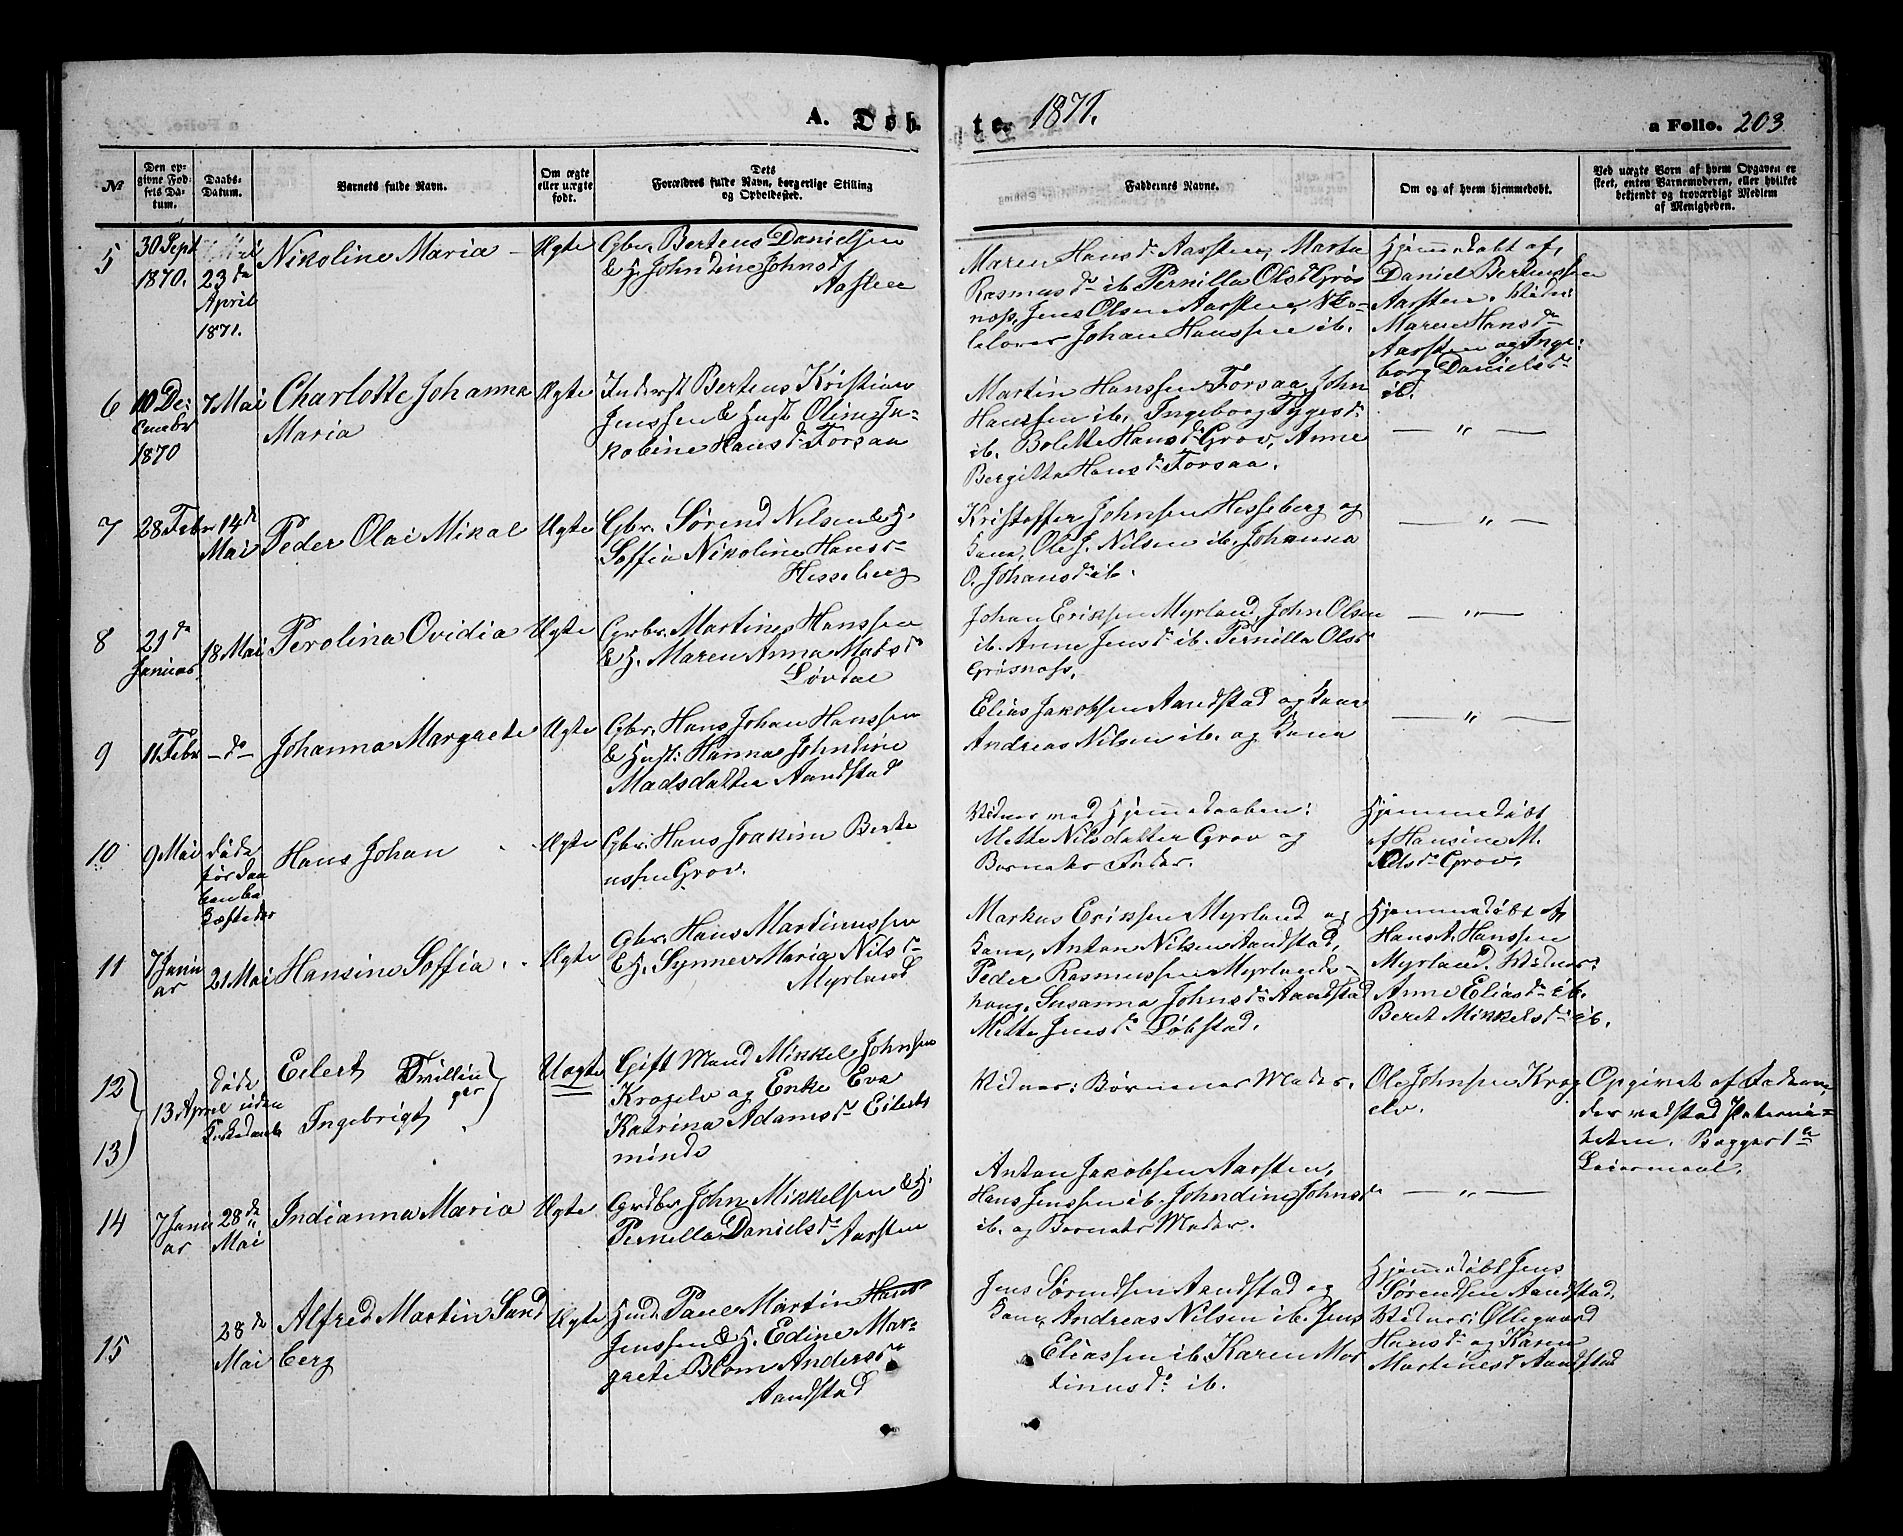 A. Døb-
te. 1871.
a Folio. 203
№
Den op-
givne Fød-
sels Da-
tum.
Daabs-
Datum.
Barnets fulde Navn.
Om ægte
eller uægte
født.
Dets
Forældres fulde Navn, borgerlige Stilling
og Opholdssted.
Faddernes Navne.
Om og af hvem hjemmedøbt.
Ved uægte Børn af hvem Opgaven er
skeet, enten Barnemoderen, eller hvilket
bekjendt og troværdigt Medlem
af Menigheden.
5
30 Sept
1870.
23de
April
1871.
Nikoline Maria
Ægte
Gbr. Berteus Danielsen
& H. Johndine Johnsd.
Aarsten
Maren Hansd. Aarsten, Marta
Rasmusd. ib. Pernilla Olsd. Grøs
næss, Jens Olsen Aarsten,
Johan Hanssen ib.
Hjemmedøbt af
Daniel Berteussen
Aarsten. Vidn:
Maren Hansd.
Aarsten og Inge-
borg Danielsd.
ib.
6
10 De-
cember
1870
7 Mai
Charlotte Johanna
Maria
Ægte
Inderst Berteus Kristian
Jenssen & Hust. Oline Ja-
kobine Hansd. Forsaa
Martin Hanssen Forsaa, John
Hanssen ib., Ingeborg Tygesd.
ib. Bolette Hansd. Grov, Anne
Bergitta Hansd. Forsaa.
— " —
7
28 Febr
14de
Mai
Peder Olai Mikal
Ægte
Gbr. Sørend Nilsen & H.
Soffia Nikoline Hansd.
Hesseberg
Kristoffer Johnsen Hesseberg og
Kona, Ole J. Nilsen ib. Johanna
O. Johansd. ib.
— " —
8
21de
Januar
18 Mai
Perolina Ovidia
Ægte
Grbr. Martines Hanssen
& H. Maren Anna Madsd.
Løvdal
Johan Eriksen Myrland, John Olsen
ib. Anne Jensd. ib. Pernilla Olsd.
Grøsnæss.
— " —
9
11 Febr
— do —
Johanna Margrete
Ægte
Gbr. Hans Johan Hanssen
& Hust: Hanna Johndine
Madsdatter Aandstad
Elias Jakobsen Aandstad og Kona
Andreas Nilsen ib. og Kona
— " —
10
9 Mai
døde
før Daa
ben be
kræftedes
Hans Johan
Ægte
Gbr. Hans Joakim Berte
ussen Grov.
Vidner ved Hjemmedaaben:
Mette Nilsdatter Grov og
Barnets Fader.
Hjemmedøbt
af Hansine M.
Nilsd. Grov.
11
7 Janu
ar
21 Mai
Hansine Soffia
Ægte
Gbr. Hans Martinussen
& H. Synnev Maria Nilsd.
Myrland
Markus Eriksen Myrland og
Kona, Anton Nilsen Aandstad,
Peder Rasmussen Myrlands-
haug, Susanna Johnsd. Aandstad
Mette Jensd. Løbstad.
Hjemmedøbt af
Hans A. Hanssen
Myrland. Vidner:
Anne Eliasd. ib.
Beret Mikkelsd. ib.
12
13
13 April
døde
uden
Kirkedaab
Eilert
Ingebrigt
Tvillin
ger
Uægte
Gift Mand Mikkel Johnsen
Kragelv og Enke Eva
Katrina Adamsd. Eilerts
minde
Vidner: Børnenes Moder.
Ole Johnsen Krag
elv.
Opgivet af Faderen,
der vedstod Paterni-
teten. Begges 1ste
Leiermaal.
14
7 Janu
ar
28de
Mai
Indianna Maria
Ægte
Grdbr John Mikkelsen & H.
Pernella Danielsd.
Aarsten
Anton Jakobsen Aarsten,
Hans Jenssen ib. Johndine Johnsd.
ib. og Barnets Moder.
— " —
15
28de
Mai
Alfred Martin Sand
berg
Ægte
Husm. Paul Martin Hans
Jenssen & H. Edine Mar-
grete Blom Andersd.
Aandstad
Jens Sørendsen Aandstad og
Kona, Andreas Nilsen ib. Jens
Eliassen ib. Karen Mar
tinusd. ib.
Hjemmedøbt Jens
Sørendsen Aandstad,
Vidner: Øllegaard
Hansd. og Karen
Martinesd. Aandstad